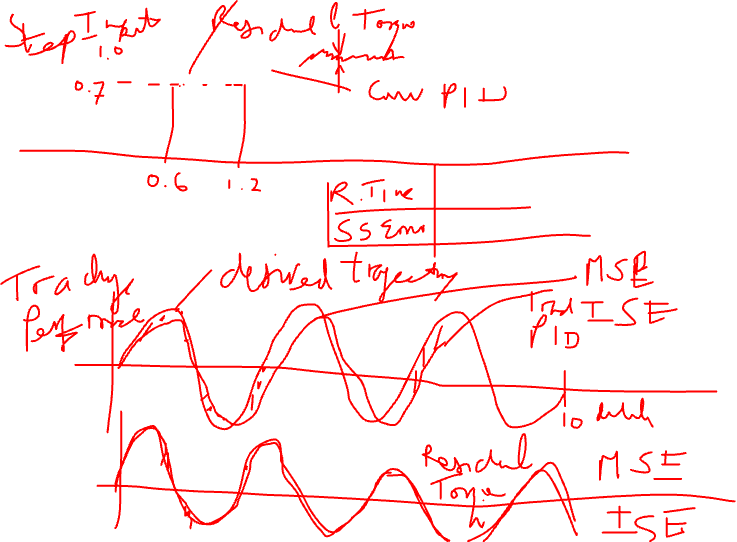 Step Input
1.0
Residual Torque
0.7
Conv PID
0.6 1.2
R.Time
SS Error
Tracking
Performance
desired trajectory
MSE
Trad
PID
ISE
10
Residual
Torque
MSE
ISE